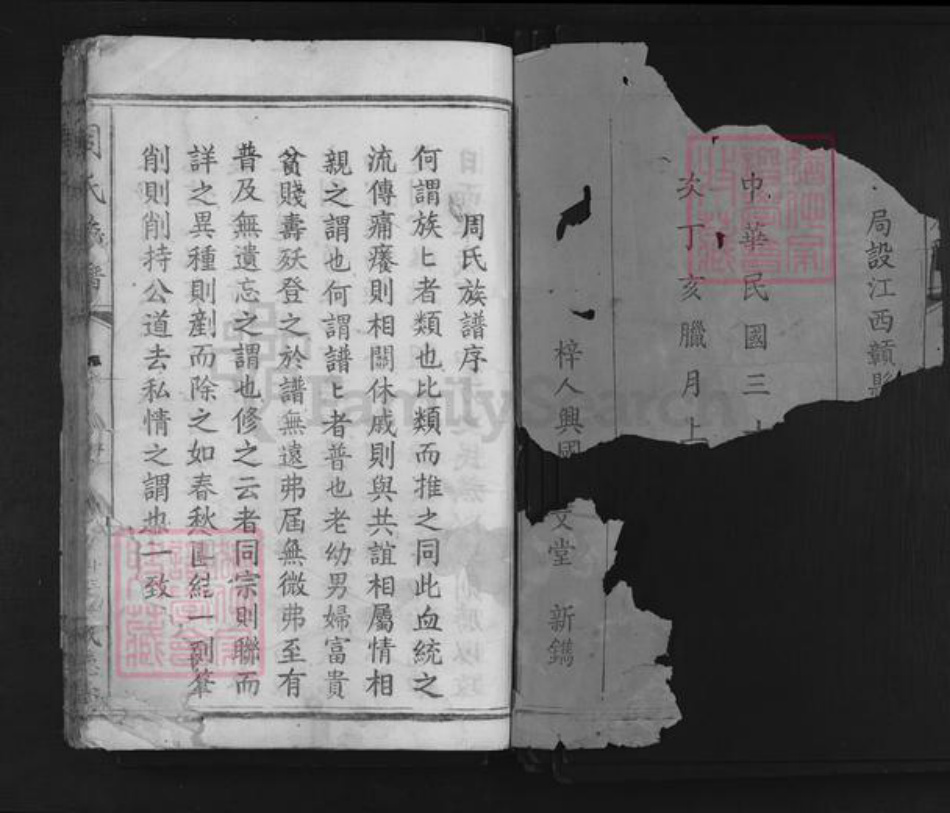 局設江西贛縣
中華民國三十
次丁亥臘月上
梓人興國
文堂 新鐫
周氏族譜序
何謂族匕者類也比類而推之同此血統之
流傳痛癢則相關休戚則與共誼相屬情相
親之謂也何謂譜匕者普也老幼男婦富貴
貧賤壽殀登之於譜無遠弗屆無微弗至有
普及無遺忘之謂也修之云者同宗則聯而
詳之異種則剷而除之如春秋 一 筆
削則削持公道去私情之謂也一致
周氏族譜
FamilySearch